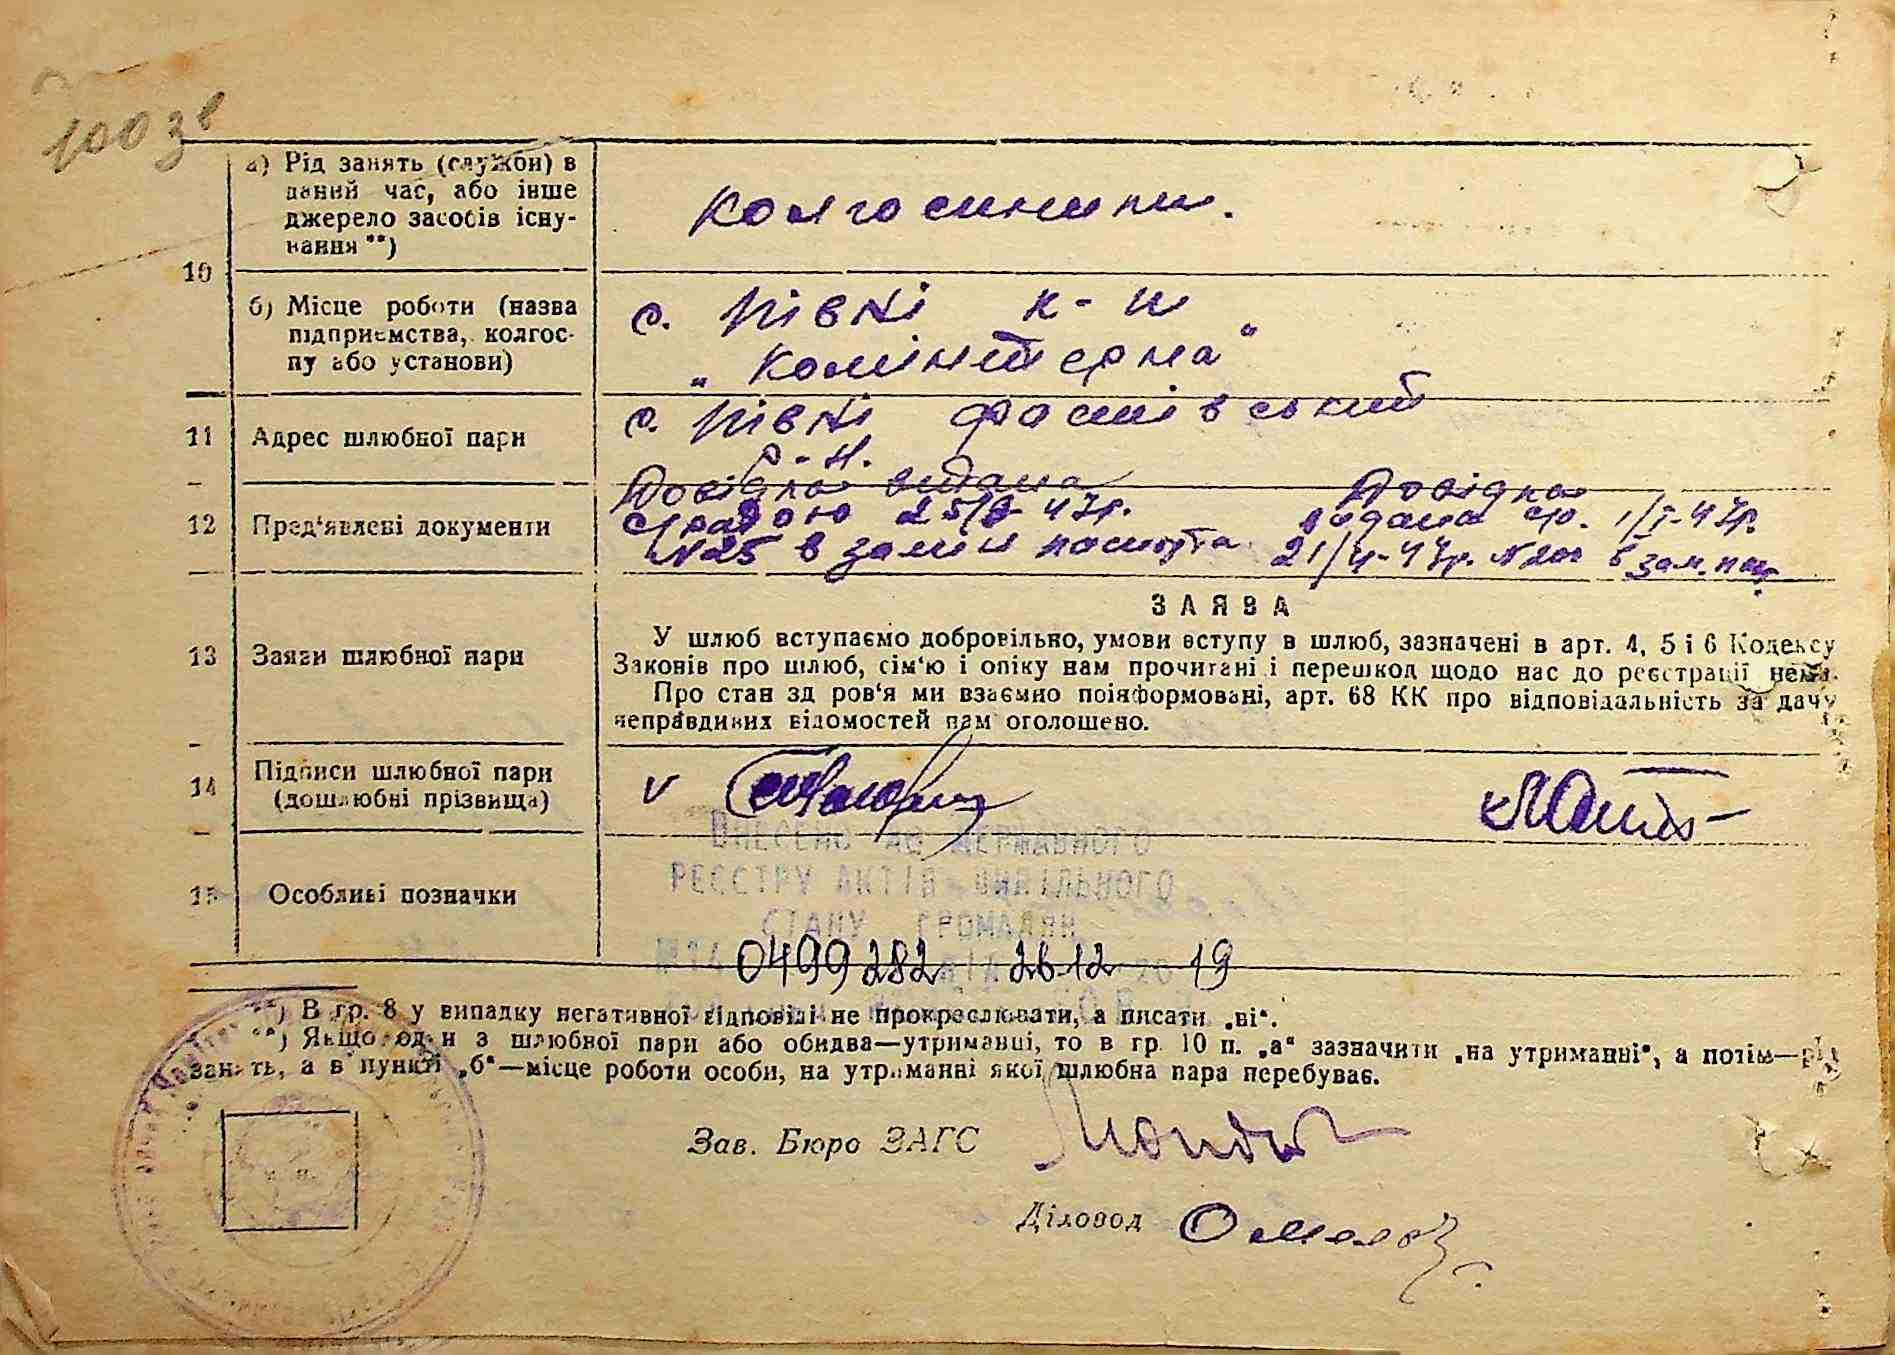 100 зв
10
а) Рід занять (служби) в
даний час, або інше
джерело засобів існу-
вання **)
колгоспники.
б) Місце роботи (назва
підприємства, колгос-
пу або установи)
с. Півні к-п
„Комінтерна"
11
Адрес шлюбної пари
с. Півні Фастівський
р-н.
12
Пред'явлені документи
Довідка видана
с/радою 25/ 47р.
№25 в замін паспорта
Довідка
видана 1/I-47р.
21/ 47р. № в зам. пасп.
13
Заяви шлюбної пари
ЗАЯВА
У шлюб вступаємо добровільно, умови вступу в шлюб, зазначені в арт. 4, 5 і 6 Кодексу
Законів про шлюб, сім'ю і опіку нам прочитані і перешкод щодо нас до реєстрації нема.
Про стан здоров'я ми взаємно поінформовані, арт. 68 КК про відповідальність за дачу
неправдивих відомостей нам оголошено.
14
Підписи шлюбної пари
(дошлюбні прізвища)
v
15
Особливі позначки
ВНЕСЕНО ДО ДЕРЖАВНОГО
РЕЄСТРУ АКТІВ ЦИВІЛЬНОГО
СТАНУ ГРОМАДЯН
№14 0499282 ВІД 26 12 2019
*) В гр. 8 у випадку негативної відповіді не прокреслювати, а писати „ні".
**) Якщо один з шлюбної пари або обидва—утриманці, то в гр. 10 п. „а" зазначити „на утриманні", а потім—рід
занять, а в пункті „б"—місце роботи особи, на утриманні якої шлюбна пара перебуває.
Зав. Бюро ЗАГС
Діловод